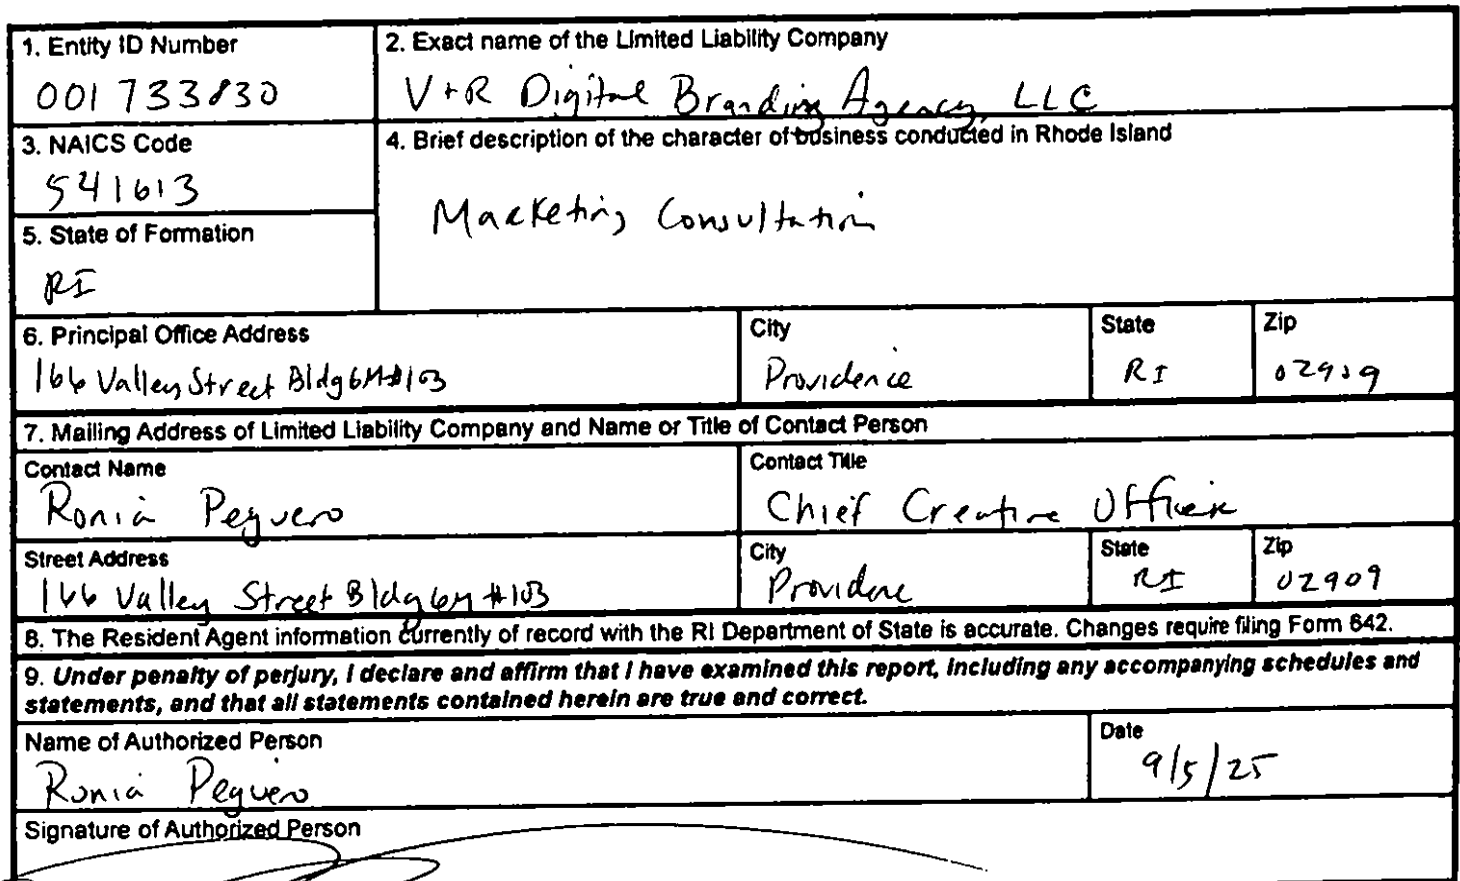 1. Entity ID Number
001733830
2. Exact name of the Limited Liability Company
V+R Digital Branding Agency, LLC
3. NAICS Code
541613
4. Brief description of the character of business conducted in Rhode Island
Marketing Consultation
5. State of Formation
RI
6. Principal Office Address
166 Valley Street Bldg 6M #103
City
Providence
State
RI
Zip
02909
7. Mailing Address of Limited Liability Company and Name or Title of Contact Person
Contact Name
Ronia Peguero
Contact Title
Chief Creative Officer
Street Address
166 Valley Street Bldg 6M #103
City
Providence
State
RI
Zip
02909
8. The Resident Agent information currently of record with the RI Department of State is accurate. Changes require filing Form 642.
9. Under penalty of perjury, I declare and affirm that I have examined this report, including any accompanying schedules and
statements, and that all statements contained herein are true and correct.
Name of Authorized Person
Ronia Peguero
Date
9/5/25
Signature of Authorized Person